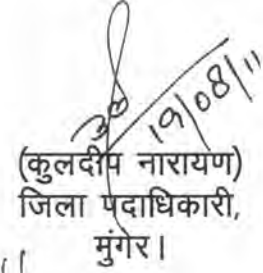 19/08/11
(कुलदीप नारायण)
जिला पदाधिकारी,
मुंगेर।